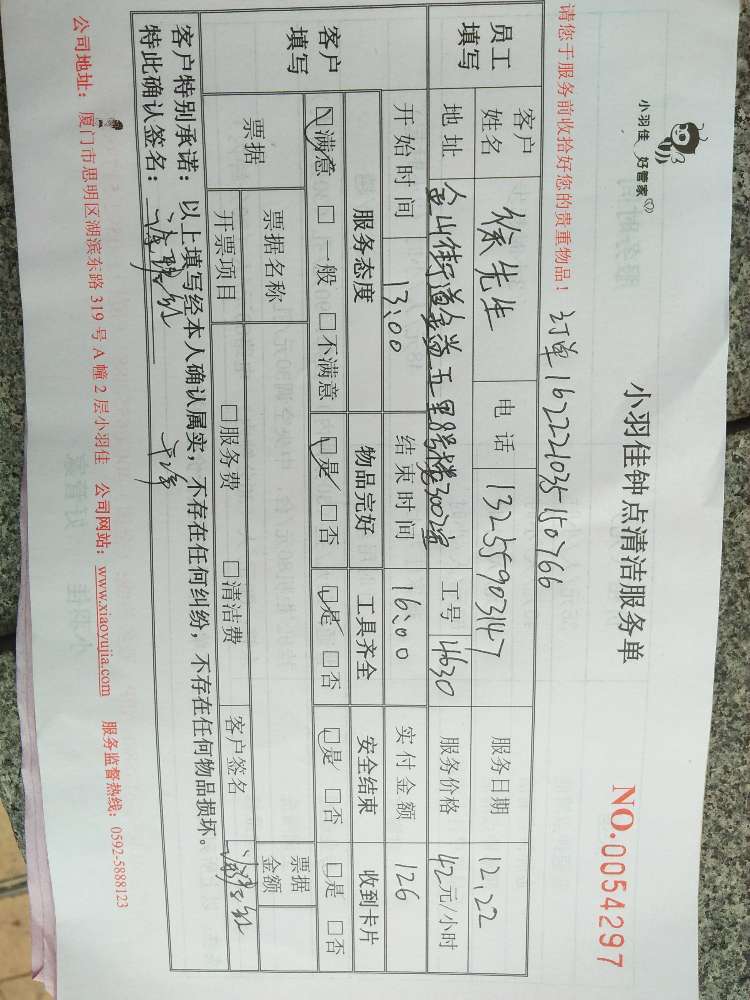 小羽佳 好管家
小羽佳钟点清洁服务单
NO.0054297
请您于服务前收拾好您的贵重物品！ 订单162221035150766
员工填写 客户姓名 徐先生 电话 13255903147 服务日期 12.22
地址 金山街道金尚五里 3002室 工号 4630 服务价格 42元/小时
开始时间 13:00 结束时间 16:00 实付金额 126
客户填写 服务态度 物品完好 工具齐全 安全结束 收到卡片
□满意 □一般 □不满意 □是 □否 □是 □否 □是 □否 □是 □否
票据 票据名称 票据金额
开票项目 □服务费 □清洁费 客户签名
客户特别承诺：以上填写经本人确认属实，不存在任何纠纷，不存在任何物品损坏。
特此确认签名：
公司地址：厦门市思明区湖滨东路 319 号 A 幢 2 层小羽佳 公司网站：www.xiaoyujia.com 服务监督热线：0592-5888123